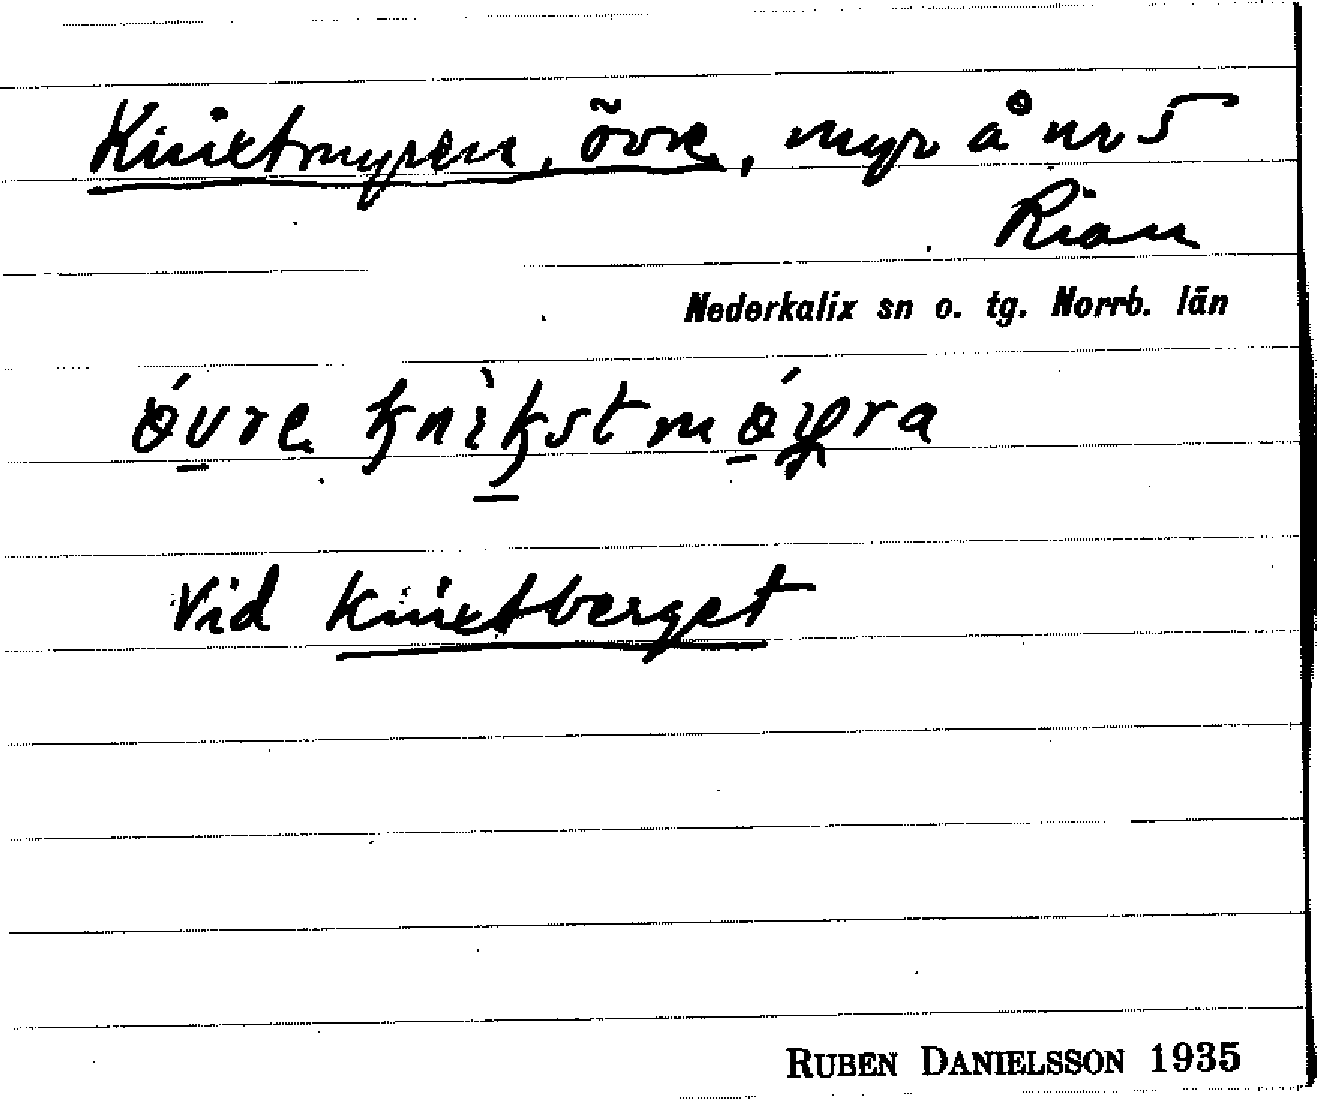 Knixtmyren, övre, myr å nr 5
Rian
Nederkalix sn o. tg. Norrb. län
øvre knikstmøyra
Vid Knixtberget
RUBEN DANIELSSON 1935